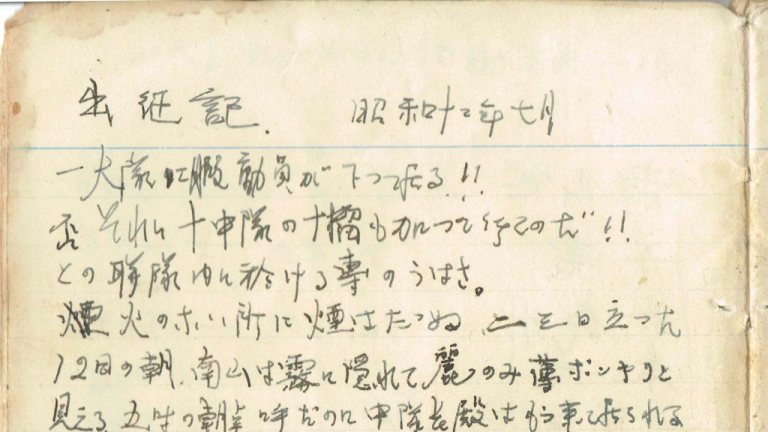 出征記. 昭和十二年七月
一大隊に 動員が下つて居る!!
否それに十中隊の十榴も加はつて行くのだ!!
との聯隊内に於ける専のうはさ。
煙火のない所に煙はたつぬ 二三日立つた
12日の朝、南山は霧に隠れて麗のみ薄ボンヤリと
見える 五時の朝 呼だのに中隊長殿はもう来て居られる